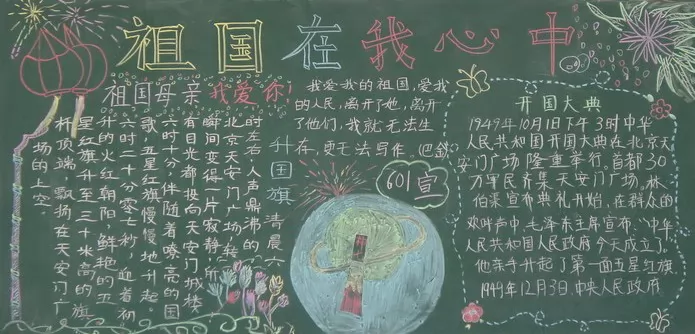 祖国在我心中
祖国母亲 我爱你!
我爱我的祖国,爱我
的人民,离开了她,离开
了他们,我就无法生
存,更无法写作.(巴金)
601宣
升国旗 清晨六
时左右,人声鼎沸的
北京天安门广场转
瞬间变得一片寂静,所
有目光都投向天安门城楼
六时十分,伴随着嘹亮的国
歌,五星红旗慢慢地升起。
六时二十分零七秒,迎着初
升的火红朝阳,鲜艳的五
星红旗升至三十米高的旗
杆顶端,飘扬在天安门广
场的上空。
开国大典
1949年10月1日下午3时中华
人民共和国开国大典在北京天
安门广场隆重举行。首都30
万军民齐集天安门广场。林
伯渠宣布典礼开始,在群众的
欢呼声中,毛泽东主席宣布,"中华
人民共和国人民政府今天成立了
他亲手升起了第一面五星红旗
1949年12月3日,中央人民政府